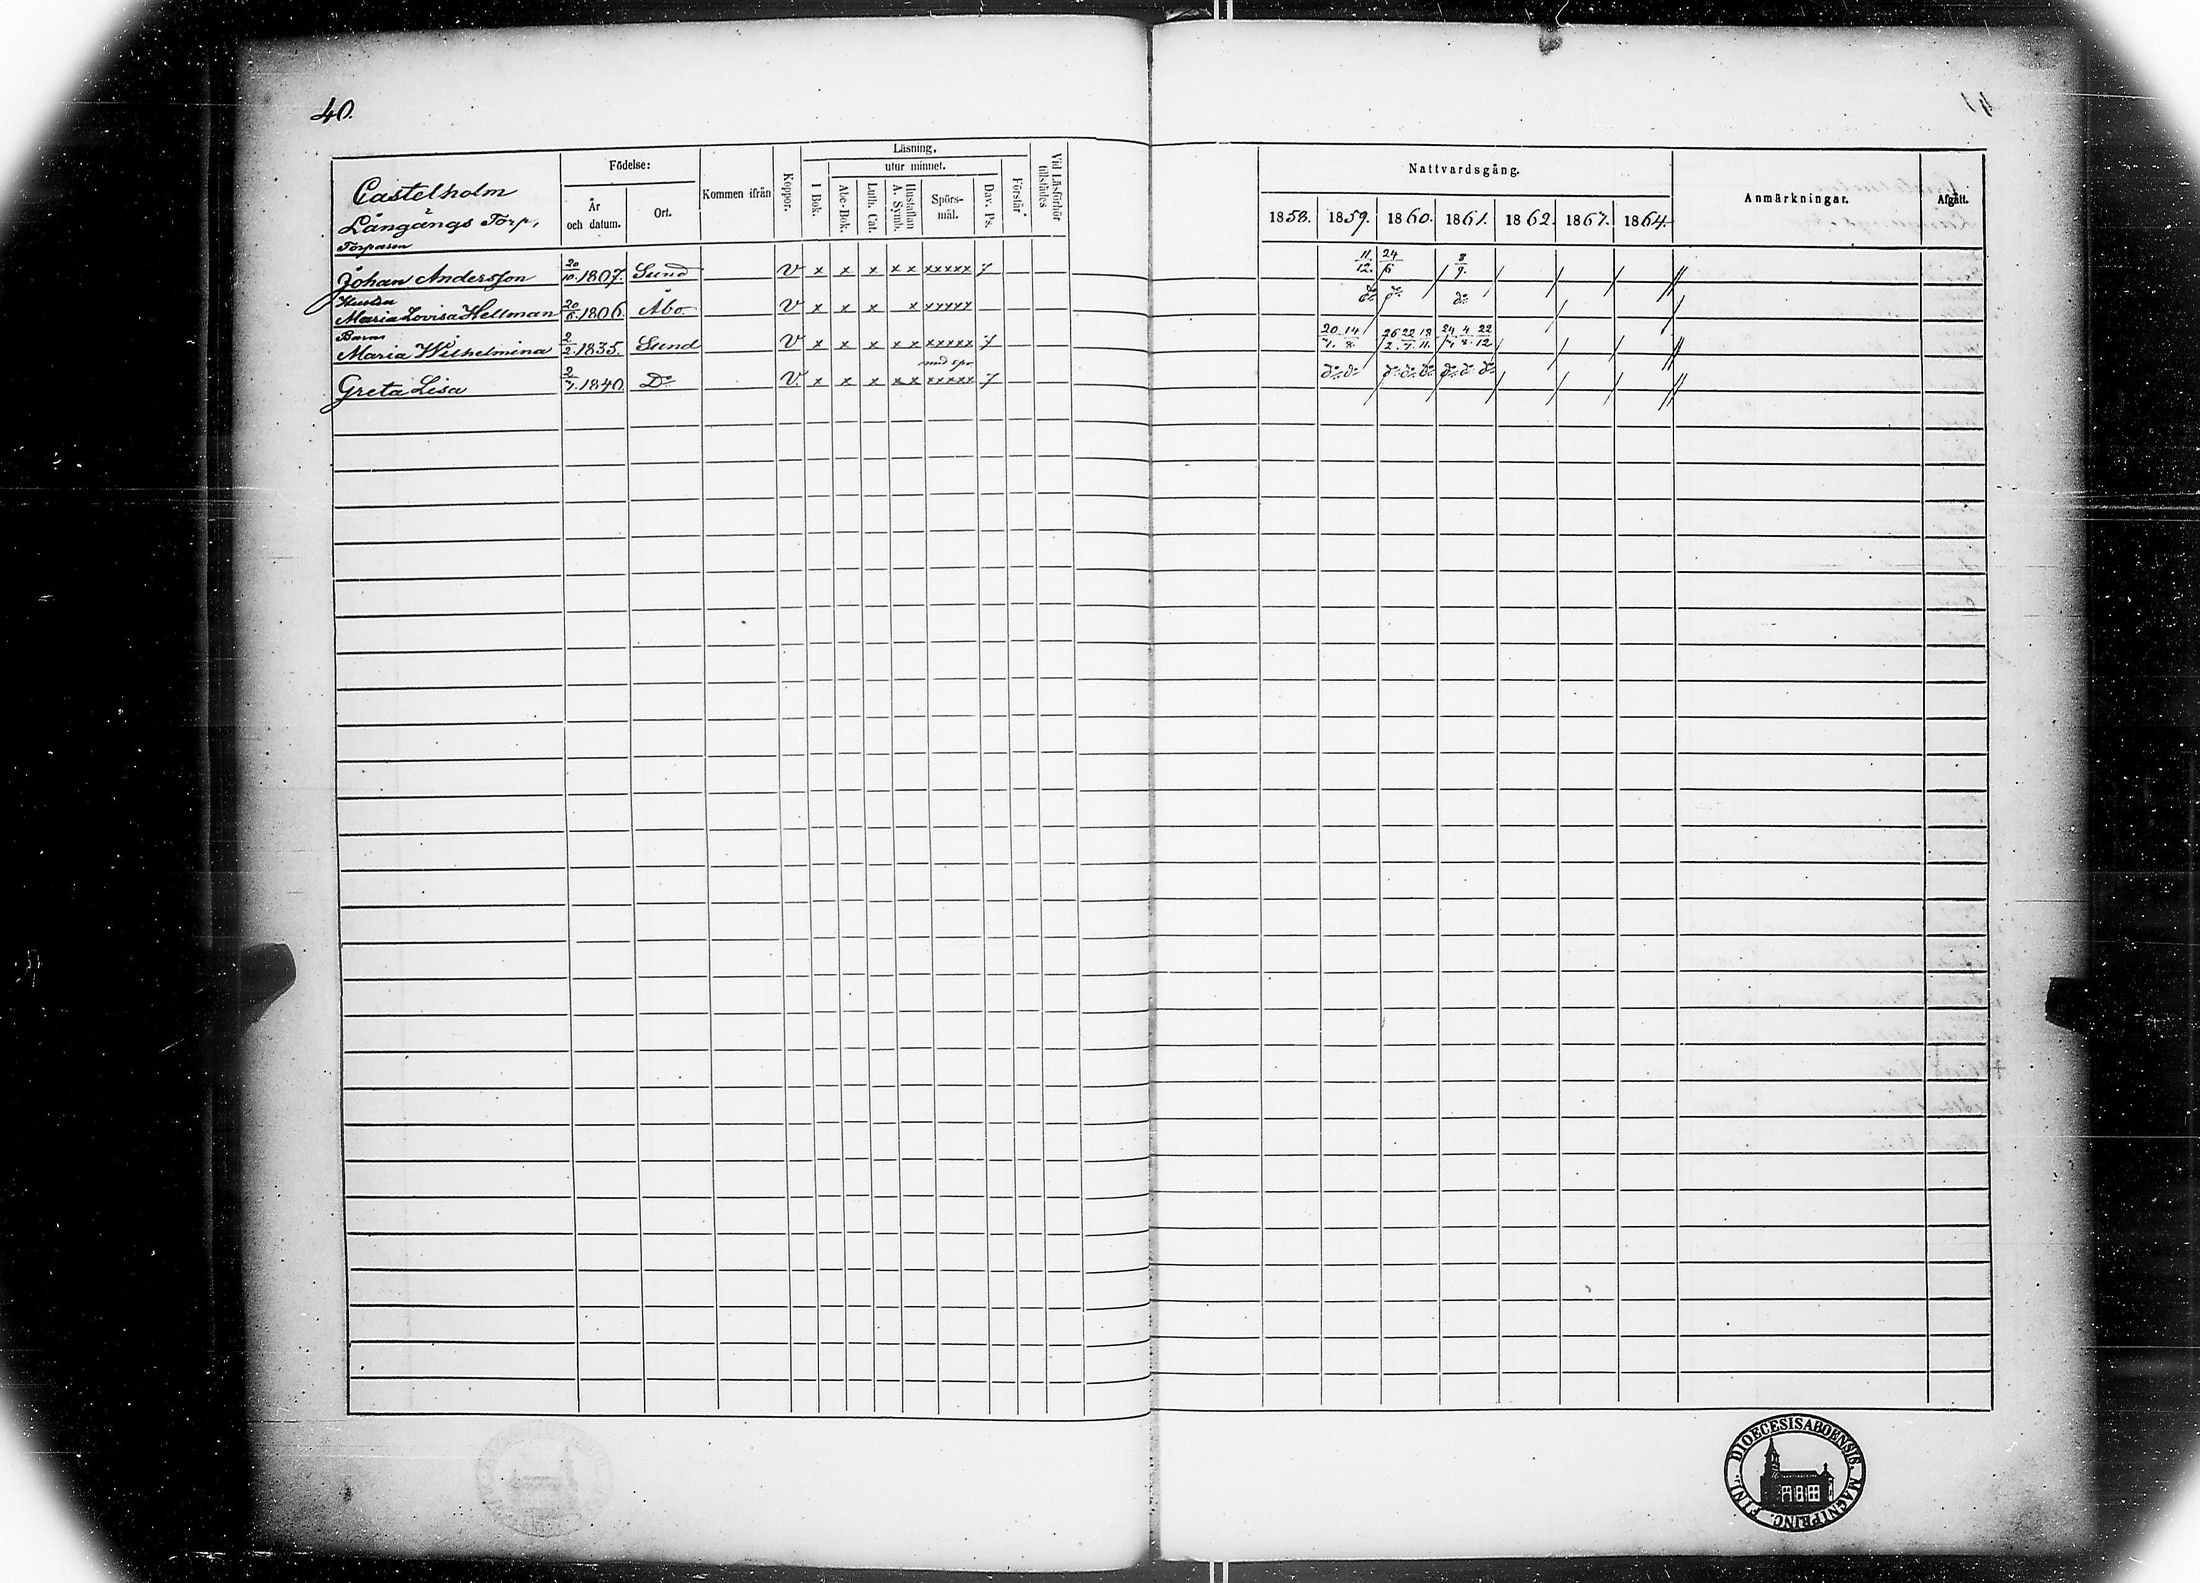 40.
41
Castelholm
Långängs Torp,
Födelse:
År
och datum.
Ort.
Kommen ifrån
Koppor.
Läsning,
utur minnet.
I Bok.
Abc-Bok.
Luth. Cat.
Hustaflan
A. Symb.
Spörs-
mål.
Dav. Ps.
Förstår
Vid Läsförhör
tillstädes
Nattvardsgång.
1858. 1859. 1860. 1861. 1862. 1867. 1864.
Anmärkningar.
Afgått.
Torparen
Johan Andersson 20/10. 1807. Sund V x x x x x xxxxx 7 11/12. 24/6 8/9.
Hustru
Maria Lovisa Hellman 20/6. 1806. Åbo V x x x x xxxxx do do do
Barn
Maria Wilhelmina 2/2. 1835. Sund V x x x x x xxxxx 7 20/1. 14/8. 26/2. 22/7. 18/11. 24/4 4/8. 22/12
med spr
Greta Lisa 2/7. 1840. Do V. x x x x x xxxxx 7 do do do do do do do do
FINL. DIOECESIS ABOENSIS. MAGNI PRINC.